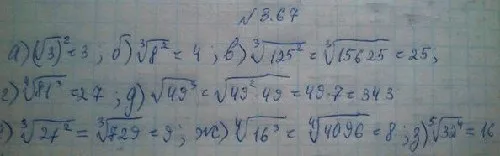 №3.67
а) (√3)² = 3; б) ∛8² = 4; в) ∛125² = ∛15625 = 25;
г) ∜81³ = 27; д) √49³ = √49²·49 = 49·7 = 343
) ∛27² = ∛729 = 9; ж) ∜16³ = ∜4096 = 8; з) ⁵√32⁴ = 16